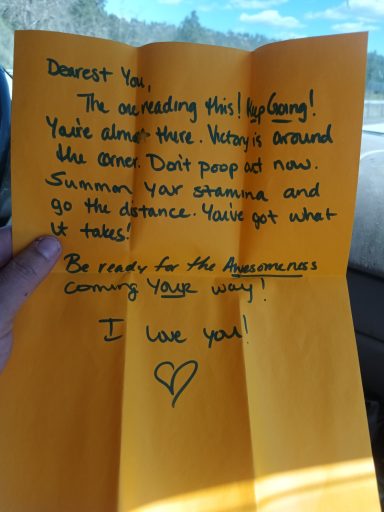 Dearest You,
The one reading this! Keep Going!
You're almost there. Victory is around
the corner. Don't poop out now.
Summon your stamina and
go the distance. You've got what
it takes!
Be ready for the Awesomeness
coming Your way!
I love you!